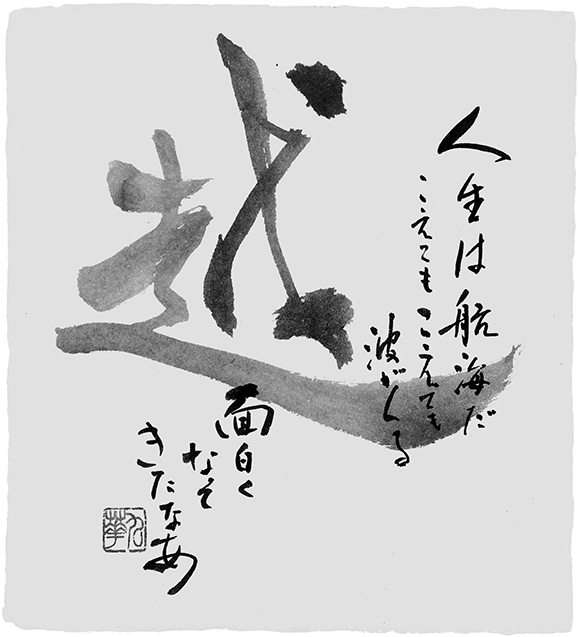 越
人生は航海だ
こえてもこえても
波がくる
面白く
なって
きたなあ